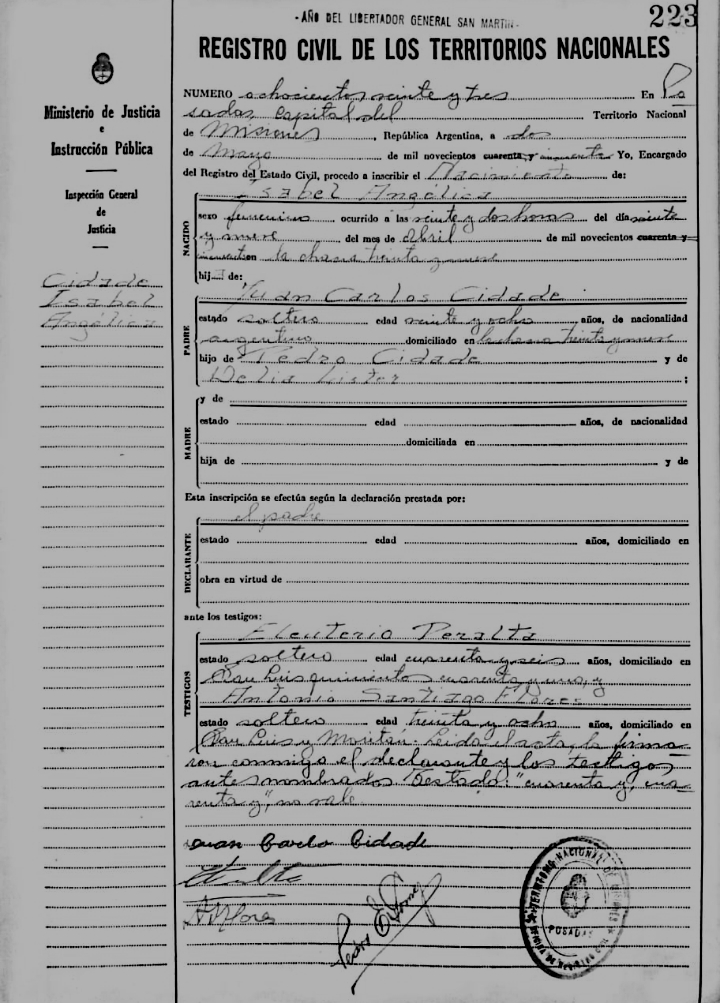 - AÑO DEL LIBERTADOR GENERAL SAN MARTIN -
223
REGISTRO CIVIL DE LOS TERRITORIOS NACIONALES
Ministerio de Justicia
e
Instrucción Pública
Inspección General
de
Justicia
Cidade
Isabel
Angélica
NUMERO ochocientos veinte y tres En Po
sadas, capital del Territorio Nacional
de Misiones, República Argentina, a dos
de Mayo de mil novecientos cuarenta y cincuenta Yo, Encargado
del Registro del Estado Civil, procedo a inscribir el Nacimiento de:
NACIDO
Isabel Angélica
sexo femenino ocurrido a las veinte y dos horas del día veinte
y nueve del mes de abril de mil novecientos cuarenta y
cincuenta en la chacra treinta y nueve
hija de:
PADRE
Juan Carlos Cidade
estado soltero edad veinte y ocho años, de nacionalidad
argentino domiciliado en la chacra treinta y nueve
hijo de Pedro Cidade y de
Delia Lister ;
MADRE
y de
estado edad años, de nacionalidad
domiciliada en
hija de y de
Esta inscripción se efectúa según la declaración prestada por:
DECLARANTE
el padre
estado edad años, domiciliado en
obra en virtud de
ante los testigos:
TESTIGOS
Eleuterio Peralta
estado soltero edad cuarenta y seis años, domiciliado en
San Luis quinientos cuarenta y uno, y
Antonio Santiago Flores
estado soltero edad treinta y ocho años, domiciliado en
San Luis y Moritán. Leída el acta, la firma
ron conmigo el declarante y los testigos
antes nombrados Testado: "cuarenta y, cua-
renta y", no vale
Juan Carlo Cidade
A Flores
Pedro E.
TERRITORIO NACIONAL DE MISIONES
POSADAS